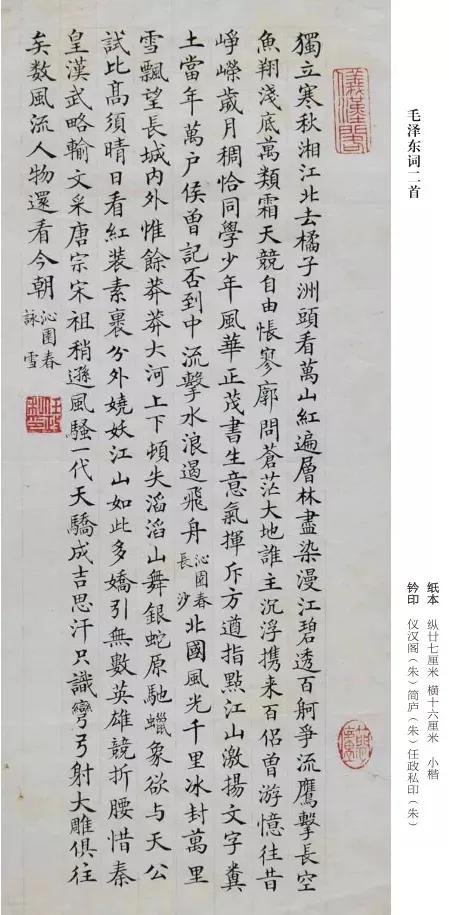 毛泽东词二首
纸本 纵廿七厘米 横十六厘米 小楷
钤印 仪汉阁（朱）简庐（朱）任政私印（朱）
儀漢閣
獨立寒秋湘江北去橘子洲頭看萬山紅遍層林盡染漫江碧透百舸爭流鷹擊長空
魚翔淺底萬類霜天競自由悵寥廓問蒼茫大地誰主沉浮携来百侶曾游憶往昔
崢嶸歲月稠恰同學少年風華正茂書生意氣揮斥方遒指點江山激揚文字糞
土當年萬户侯曾記否到中流擊水浪遏飛舟 沁園春長沙 北國風光千里冰封萬里
雪飄望長城內外惟餘莽莽大河上下頓失滔滔山舞銀蛇原馳蠟象欲与天公
試比髙須晴日看紅裝素裹分外嬈妖江山如此多嬌引無數英雄競折腰惜秦
皇漢武略輸文采唐宗宋祖稍遜風騷一代天驕成吉思汗只識彎弓射大雕俱往
矣数風流人物還看今朝 沁園春詠雪